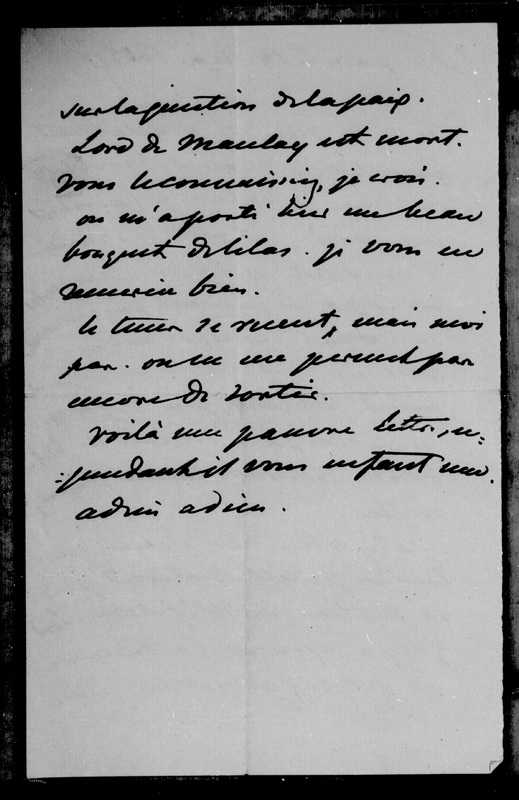 sur la question de la paix.
Lord de Mauley est mort.
Vous le connaissiez, je crois.
on m'a porté hier un beau
bouquet de lilas. je vous en
remercie bien.
le temps se remet, mais moi
pas. on ne me permet pas
encore de sortir.
voilà une pauvre lettre, ce=
=pendant il vous en faut une.
adieu adieu.